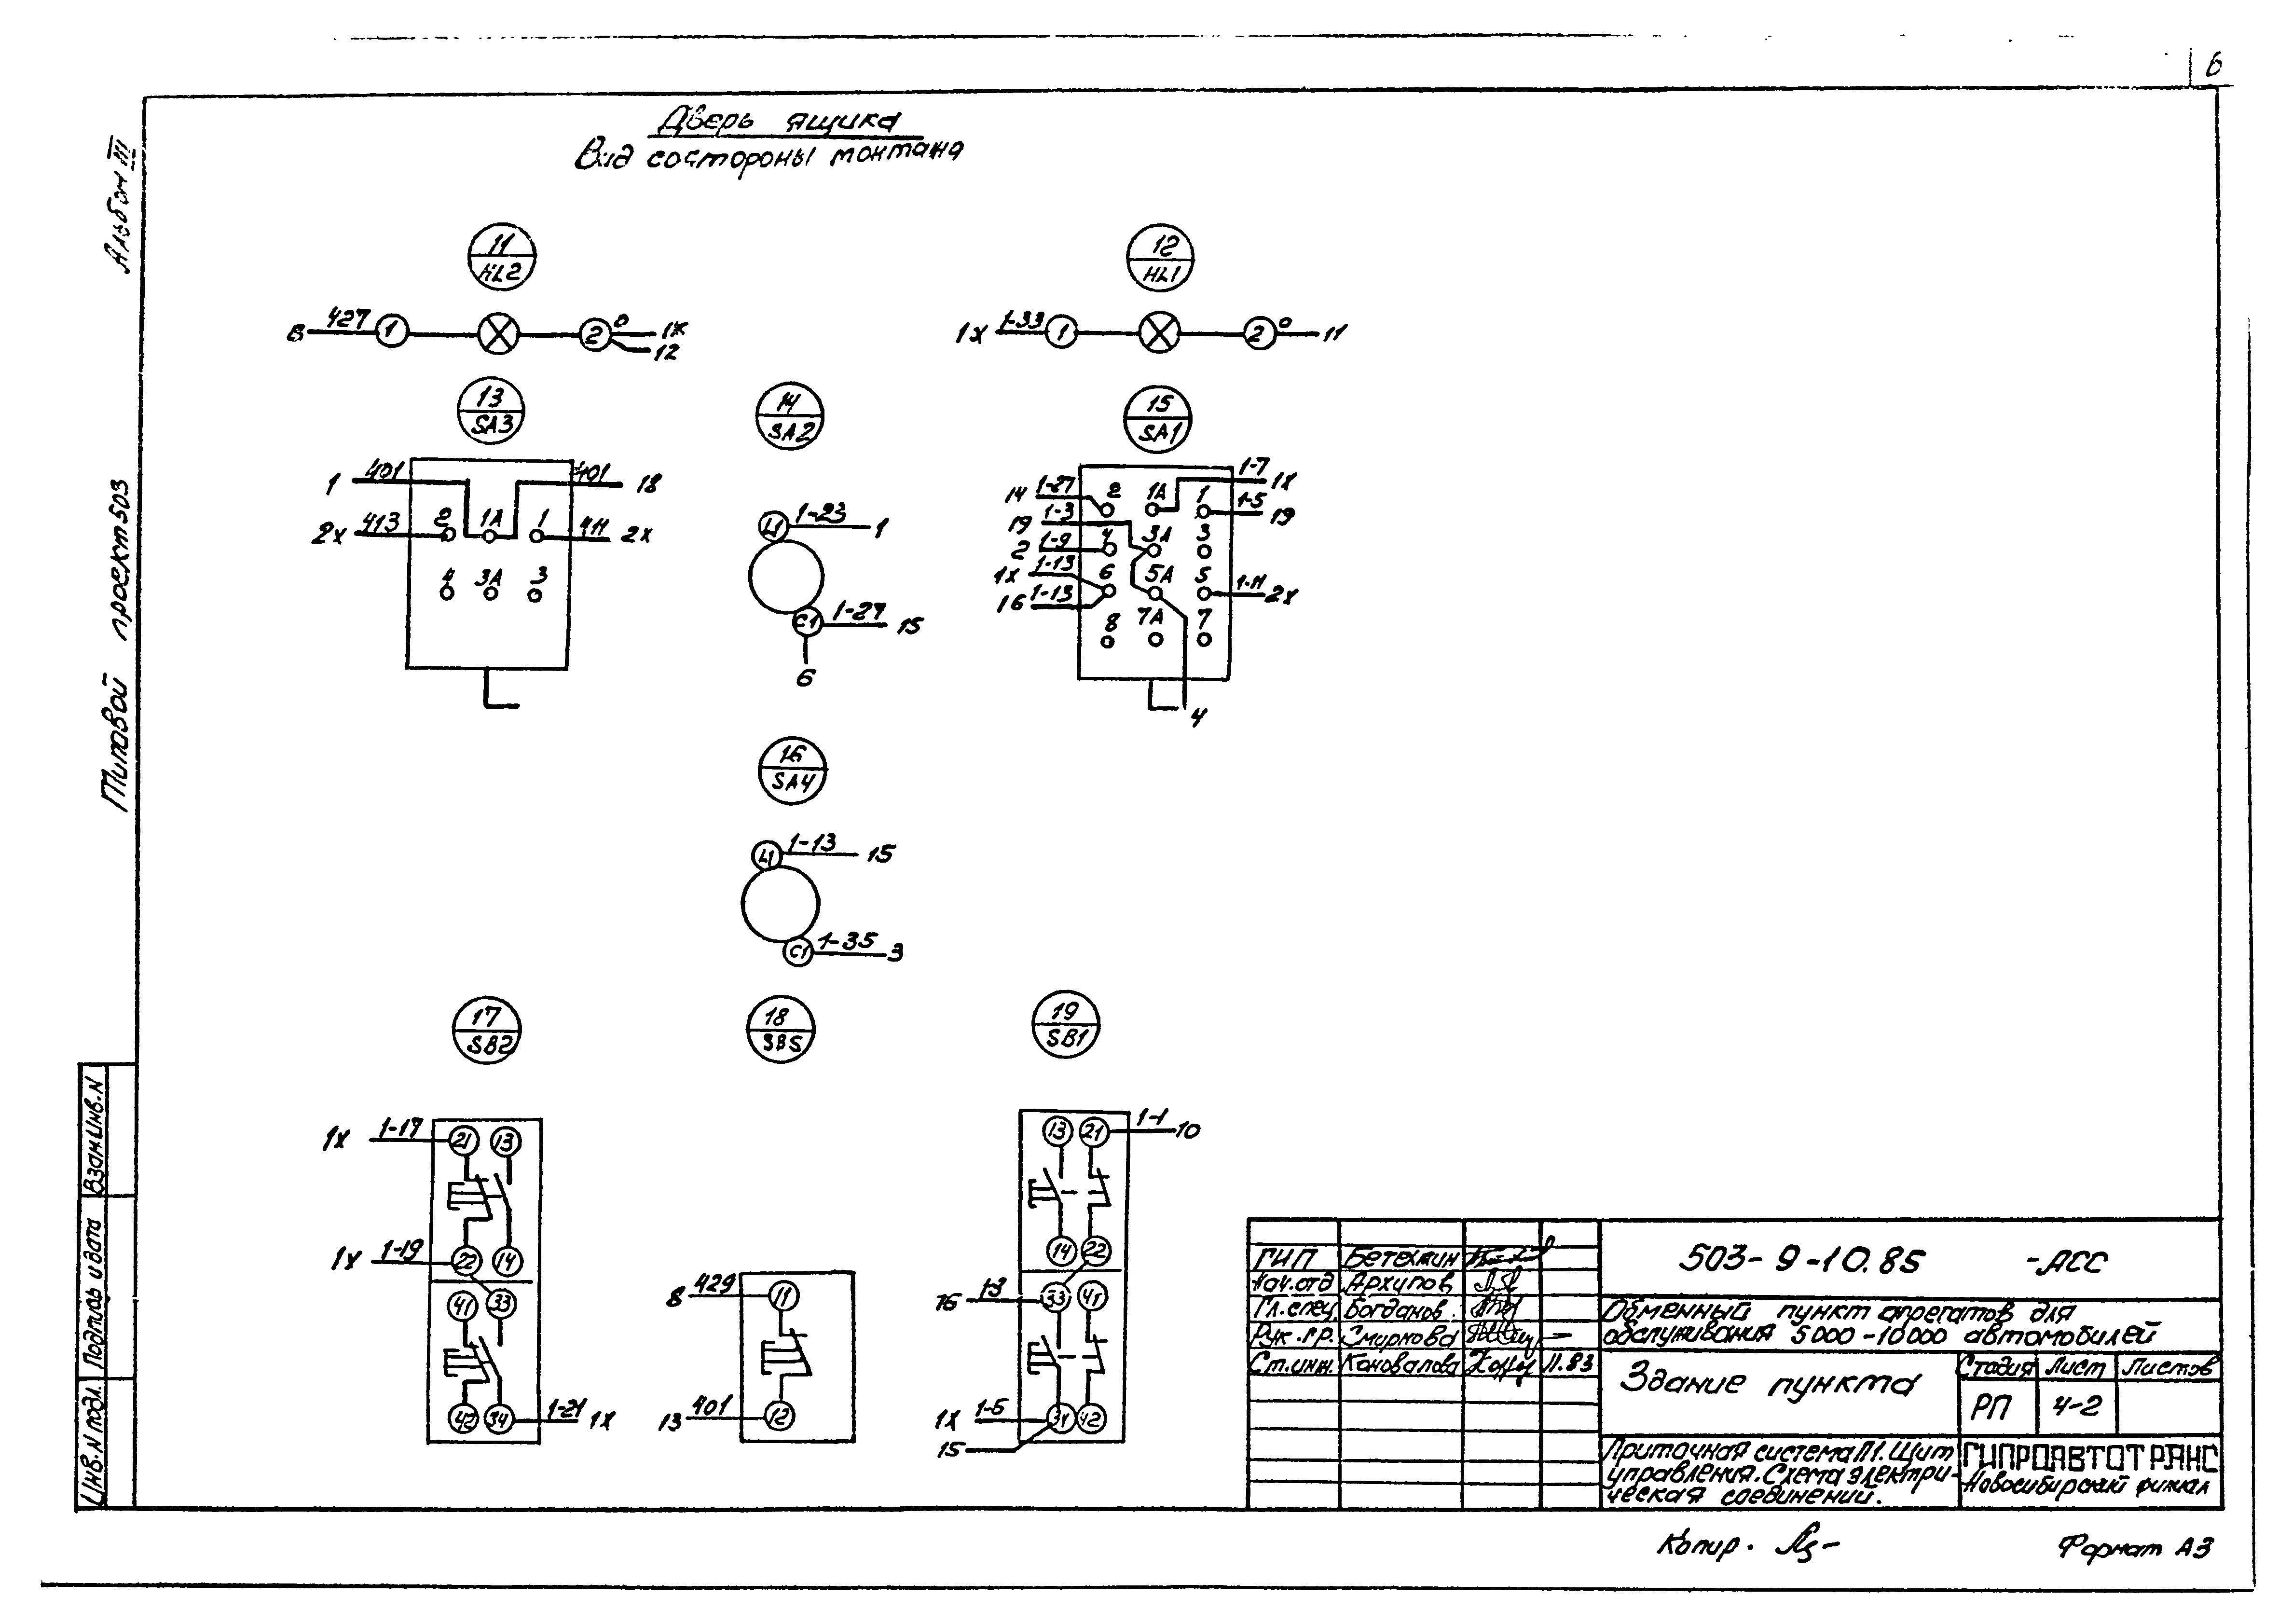 6
Дверь ящика
Вид состороны монтажа
Альбом III
Типовой проект 503
11
HL2
8 427 1 2 0 1X
12
12
HL1
1X 1-33 1 2 0 11
13
SA3
1 401 401 18
2X 413 2 1A 1 411 2X
4 3A 3
14
SA2
L1 1-23 1
C1 1-27 15
6
15
SA1
14 1-27 2 1A 1 1-7 1X
19 1-3 1-5 19
2 1-9 4 3A 3
1X 1-13 6 5A 5 1-11 2X
16 1-13
8 7A 7
4
16
SA4
L1 1-13 15
C1 1-35 3
17
SB2
1X 1-17 21 13
1X 1-19 22 14
41 33
42 34 1-21 1X
18
SB5
8 429 11
13 401 12
19
SB1
13 21 1-1 10
14 22
16 1-3 33 41
1X 1-5 34 42
15
Взам.инв.N
Подпись и дата
Инв.N подл.
ГИП Бетехтин
Нач.отд Архипов
Гл.спец. Богданов
Рук.гр. Смирнова
Ст.инж. Коновалова 11.83
503-9-10.85 -АСС
Обменный пункт агрегатов для
обслуживания 5000-10000 автомобилей
Здание пункта
Стадия Лист Листов
РП 4-2
Приточная система П1. Щит
управления. Схема электри-
ческая соединений.
ГИПРОАВТОТРАНС
Новосибирский филиал
Копир.
Формат А3